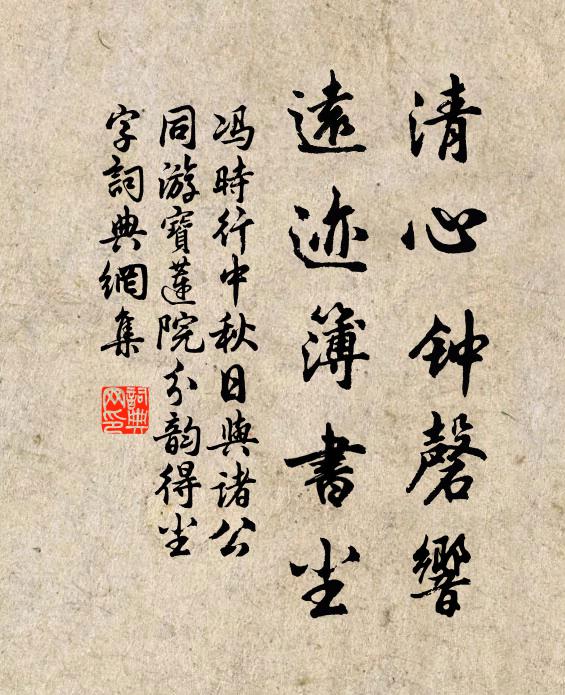 清心钟磬響
遠迹簿書尘
冯時行中秋日與諸公
同游寶蓮院分韵得尘
字詞典網集
詞典
网印